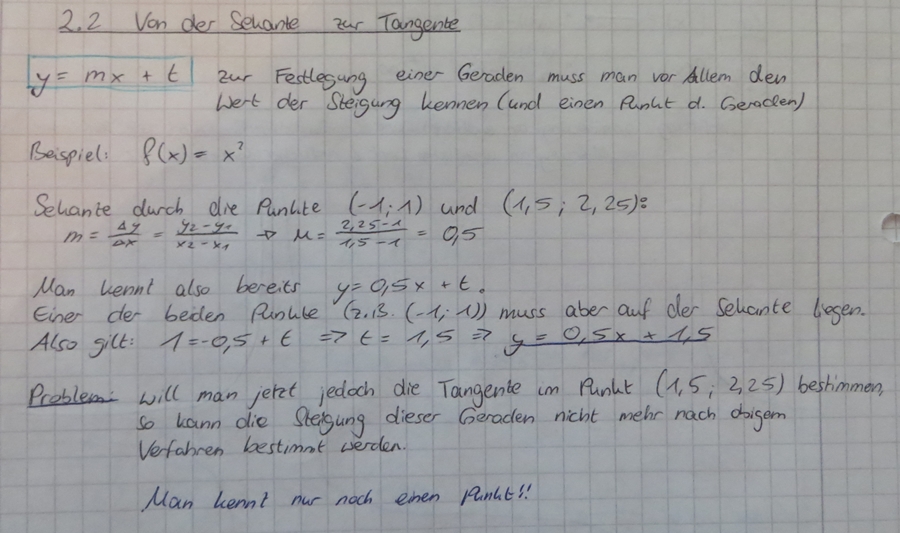 2.2 Von der Sekante zur Tangente
y = mx + t zur Festlegung einer Geraden muss man vor Allem den
Wert der Steigung kennen (und einen Punkt d. Geraden)
Beispiel: f(x) = x²
Sekante durch die Punkte (-1; 1) und (1,5 ; 2,25):
m = Δy/Δx = (y2-y1)/(x2-x1) → m = (2,25-1)/(1,5-1) = 0,5
Man kennt also bereits y = 0,5x + t.
Einer der beiden Punkte (z.B. (-1; 1)) muss aber auf der Sekante liegen.
Also gilt: 1=-0,5 + t => t = 1,5 => y = 0,5x + 1,5
Problem: will man jetzt jedoch die Tangente im Punkt (1,5 ; 2,25) bestimmen,
so kann die Steigung dieser Geraden nicht mehr nach obigem
Verfahren bestimmt werden.
Man kennt nur noch einen Punkt!!